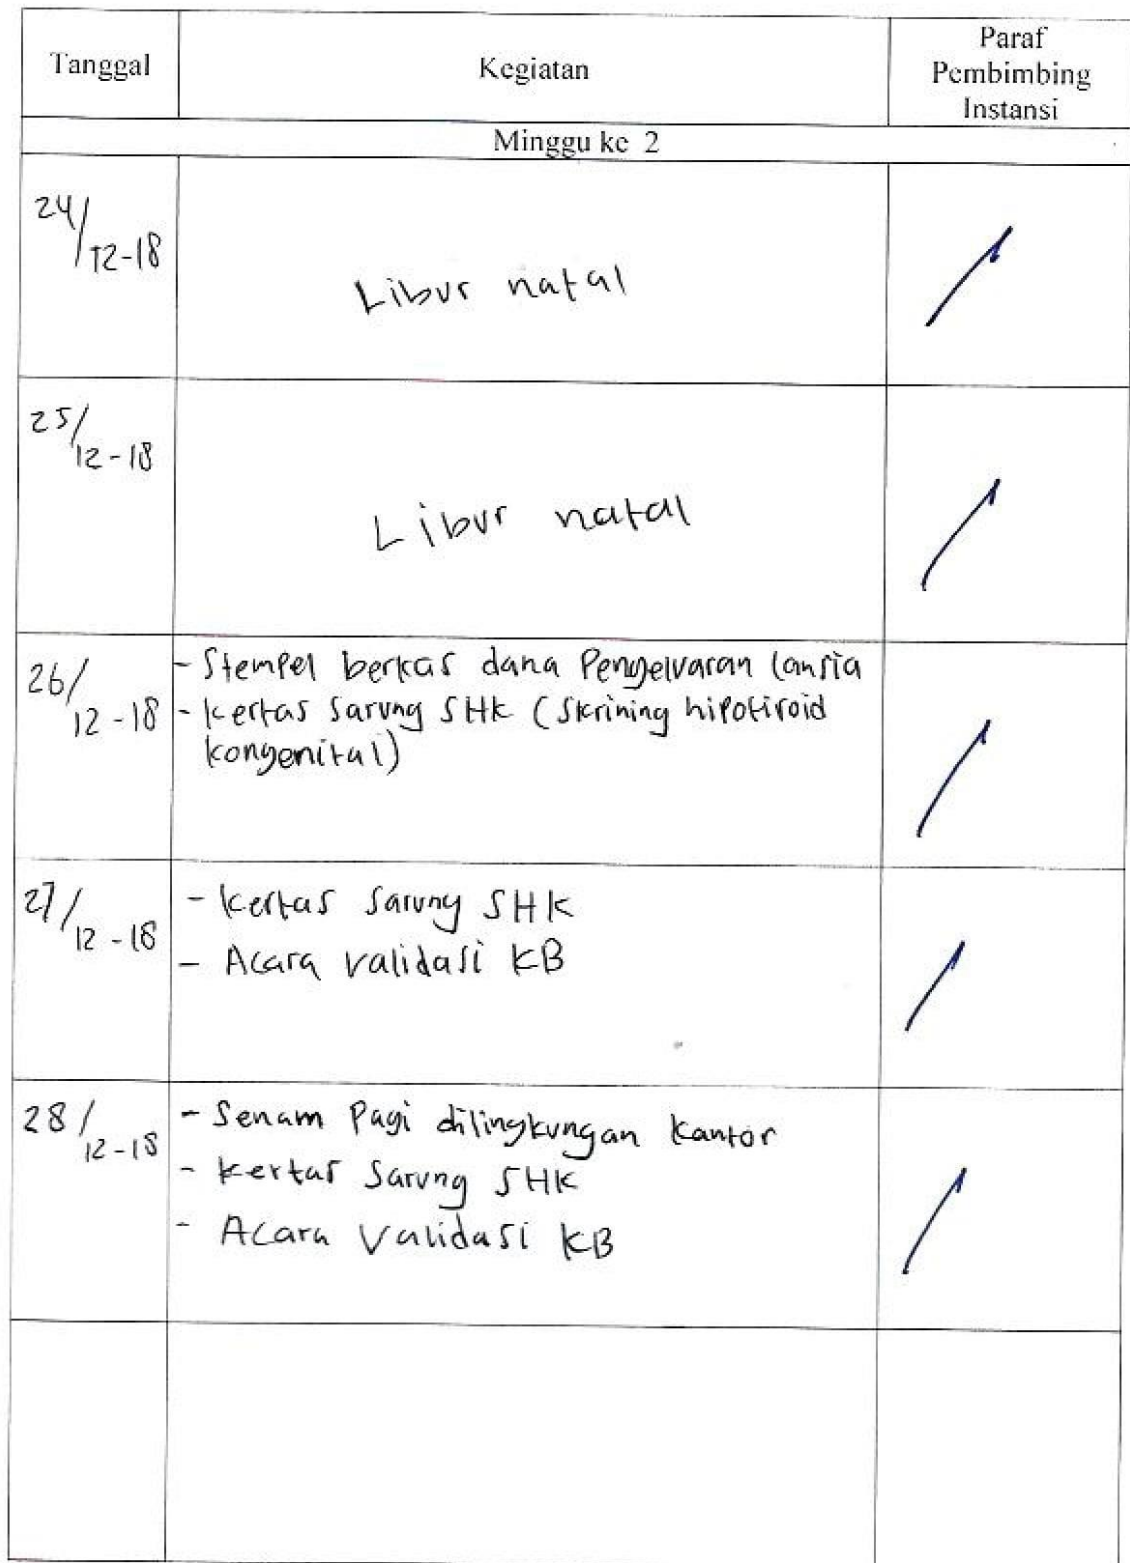 Tanggal
Kegiatan
Paraf
Pembimbing
Instansi
Minggu ke 2
24/12-18
Libur natal
25/12-18
Libur natal
26/12-18
- Stempel berkas dana Pengeluaran lansia
- kertas Sarung SHK (Skrining hipotiroid
kongenital)
27/12-18
- kertas Sarung SHK
- Acara validasi KB
28/12-18
- Senam Pagi dilingkungan kantor
- kertas Sarung SHK
- Acara Validasi KB